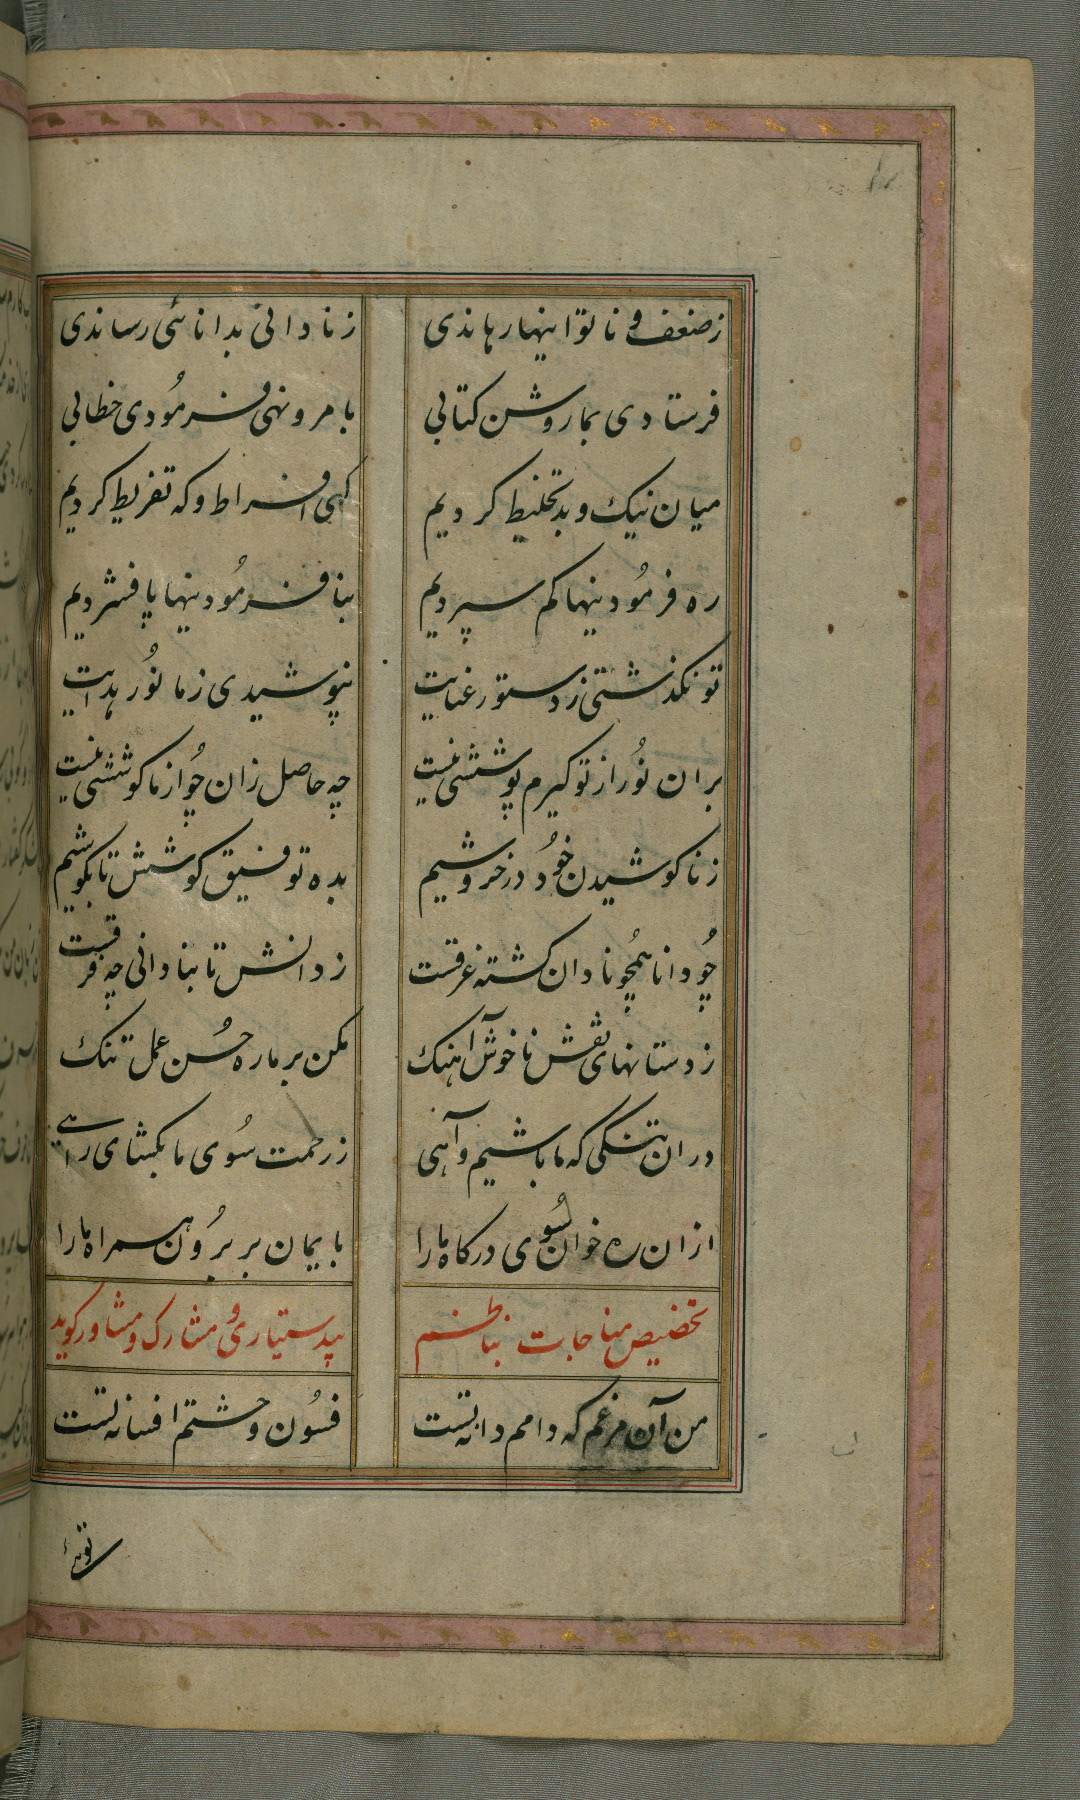 ز ضعف و ناتوانیها رهاندی ز نادانی بدانائی رساندی
فرستادی بما روشن کتابی بامر و نهی فرمودی خطابی
میان نیک و بد تخلیط کردیم کهی افراط و که تفریط کردیم
ره فرمودنیها کم سپردیم بنافرمودنیها پا فشردیم
تو نکذشتی ز دستور عنایت نپوشیدی ز ما نور هدایت
بر آن نور از تو کیرم پوششی نیست چه حاصل زان چو از ما کوششی نیست
ز ناکوشیدن خود در خروشیم بده توفیق کوشش تا بکوشیم
چو دانا همچو نادان کشته غرقست ز دانش تا بنادانی چه فرقست
ز دستانهای نفس ناخوش آهنک مکن بر ما ره حسن عمل تنک
در ان تنکی که ما باشیم و آهی ز رحمت سوی ما بکشای راهی
از ان ره خوان بسوی درکاه ما را بایمان بر برون همراه ما را
تخصیص مناجات بناظم بیدستیاری و مشارک و مشاور کوید
من آن مرغم که دامم دانه تست فسون وحشتم افسانه تست
توئی